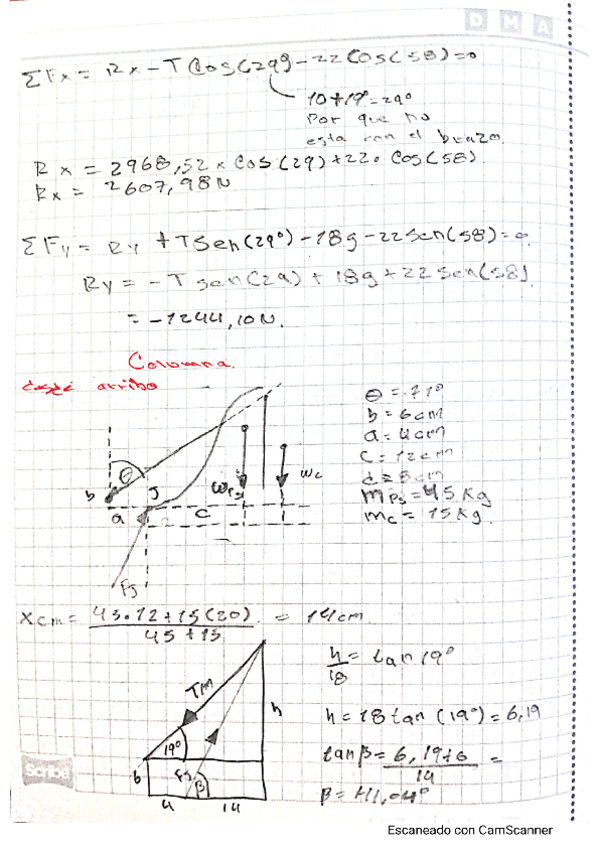 D M A
ΣFx = Rx - T Cos(29) - 22 Cos(58) = 0
10+19°=29°
Por que no
esta con el brazo.
Rx = 2968,52 x Cos(29)+22. Cos(58)
Rx = 2607,98N
ΣFy = Ry + T Sen(29°) - 18g - 22 Sen(58) = 0
Ry = - T sen(29) + 18g + 22 Sen(58)
= -1244,10N.
Columna.
desde arriba
θ = 71°
b = 6cm
a = 4cm
c = 12cm
d = 8cm
mps = 45 Kg
mc = 15 Kg.
b θ J Wps Wc
a c
FJ
Xcm = 45.12+15(20) / 45+15 = 14cm
TM h
19°
b FJ β
4 14
h/18 = tan 19°
h = 18 tan (19°) = 6,19
tan β = 6,19+6 / 14 =
β = 41,04°
Scribe
Escaneado con CamScanner